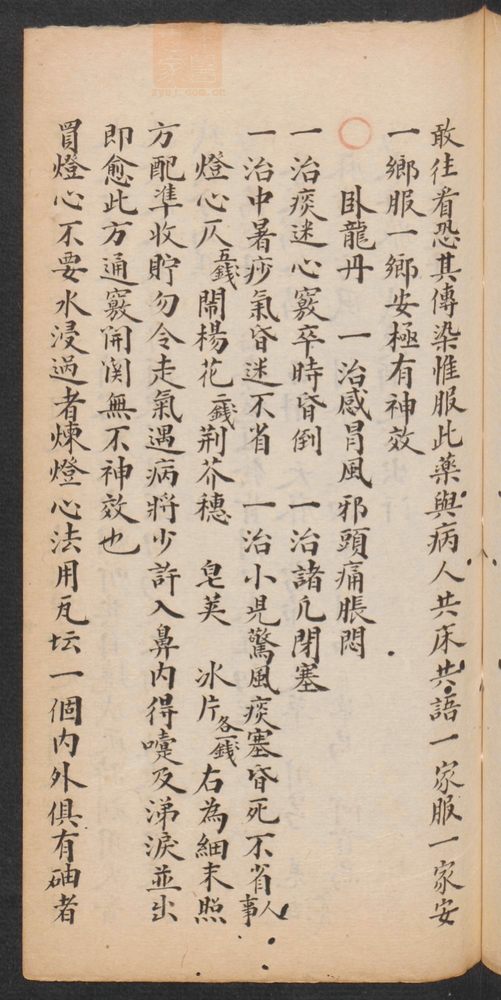 敢往看恐其傳染惟服此藥與病人共床共語一家服一家安
一鄉服一鄉安極有神效
〇 卧龍丹 一治感冒風邪頭痛脹悶
一治痰迷心竅卒時昏倒 一治諸凢閉塞
一治中暑痧氣昏迷不省 一治小児驚風痰塞昏死不省人事
燈心灰五錢 閙楊花二錢 荆芥穗 皂莢 冰片各一錢 右為細末照
方配準收貯勿令走氣遇病將少許入鼻内得嚏及涕淚並出
即愈此方通竅開関無不神效也
買燈心不要水浸過者煉燈心法用瓦坛一個内外俱有䃋者